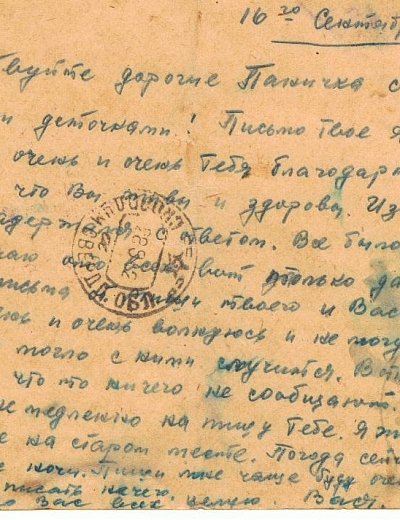 16го Сентяб
вуйте дорогие Паничка с
и деточками! Письмо твое я
очень и очень тебя благодар
что Вы живы и здоровы. Из
адержался с ответом. Все было
вот только да
письма твоего и Вас
нь и очень волнуюсь и не могу
могло с ними случится. В
что то ничего не сообщают.
медленно напишу Тебе. Я ж
е на старом месте. Погода сей
е ночи. Пиши мне чаще буду оче
писать нечего.
о Вас всех целую. Вася.